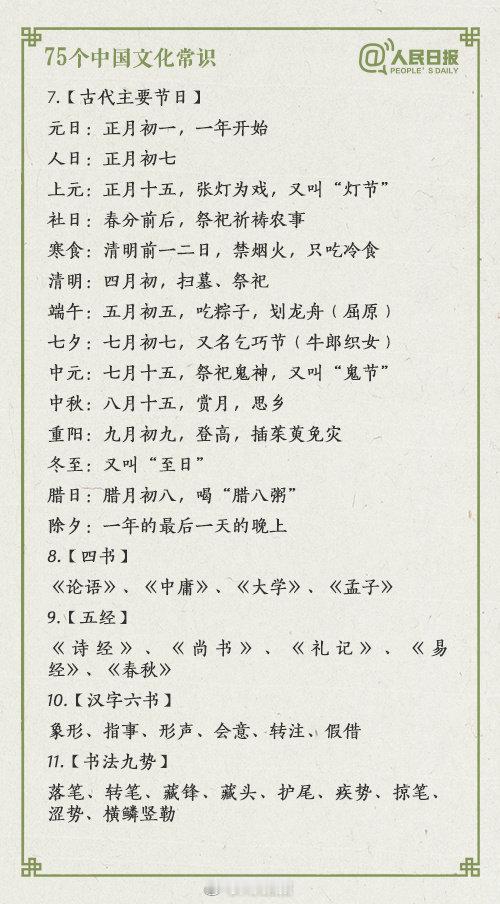 75个中国文化常识
@人民日报
PEOPLE'S DAILY
7.【古代主要节日】
元日：正月初一，一年开始
人日：正月初七
上元：正月十五，张灯为戏，又叫“灯节”
社日：春分前后，祭祀祈祷农事
寒食：清明前一二日，禁烟火，只吃冷食
清明：四月初，扫墓、祭祀
端午：五月初五，吃粽子，划龙舟（屈原）
七夕：七月初七，又名乞巧节（牛郎织女）
中元：七月十五，祭祀鬼神，又叫“鬼节”
中秋：八月十五，赏月，思乡
重阳：九月初九，登高，插茱萸免灾
冬至：又叫“至日”
腊日：腊月初八，喝“腊八粥”
除夕：一年的最后一天的晚上
8.【四书】
《论语》、《中庸》、《大学》、《孟子》
9.【五经】
《诗经》、《尚书》、《礼记》、《易
经》、《春秋》
10.【汉字六书】
象形、指事、形声、会意、转注、假借
11.【书法九势】
落笔、转笔、藏锋、藏头、护尾、疾势、掠笔、
涩势、横鳞竖勒